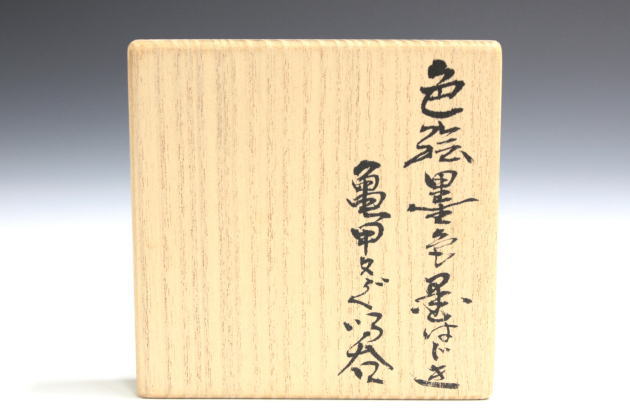 色絵墨色墨はじき
亀甲文ぐい呑